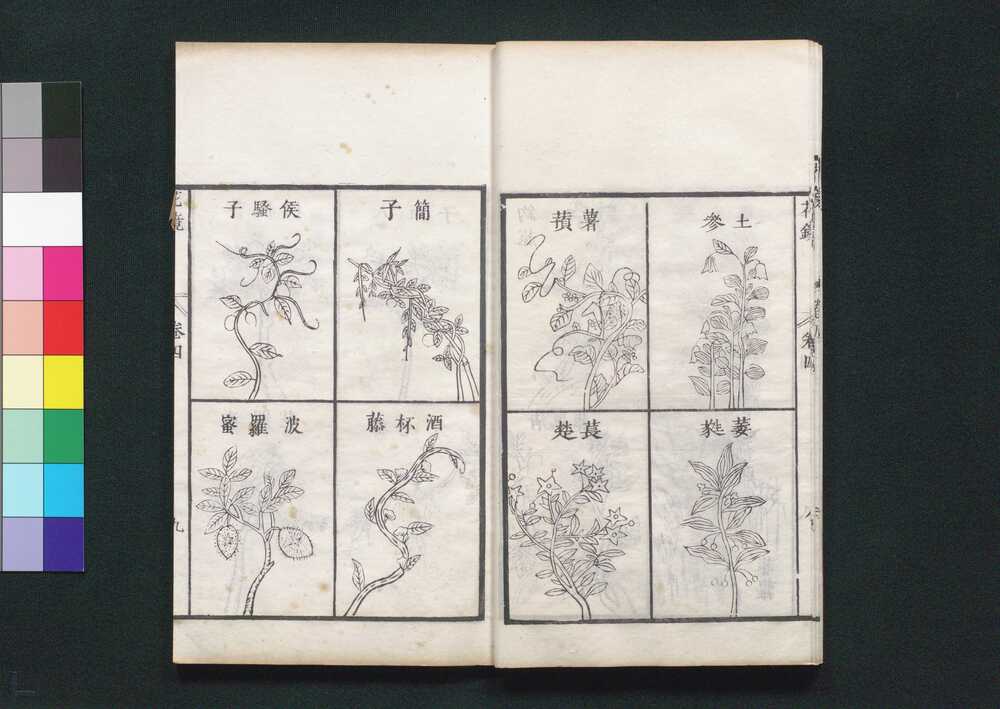 花鏡
卷四
土參
薯蕷
萎蕤
萇楚
簡子
侯騷子
酒杯藤
波羅蜜
花鏡
卷四
九